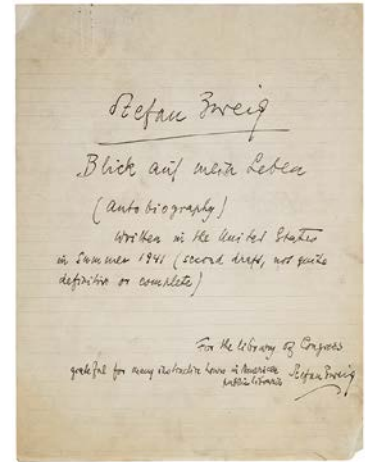 Stefan Zweig
Blick auf mein Leben
(Autobiography)
written in the United States
in Summer 1941 (second draft, not quite
definitive or complete)
For the library of Congress
grateful for many instructive hours in American
public libraries Stefan Zweig